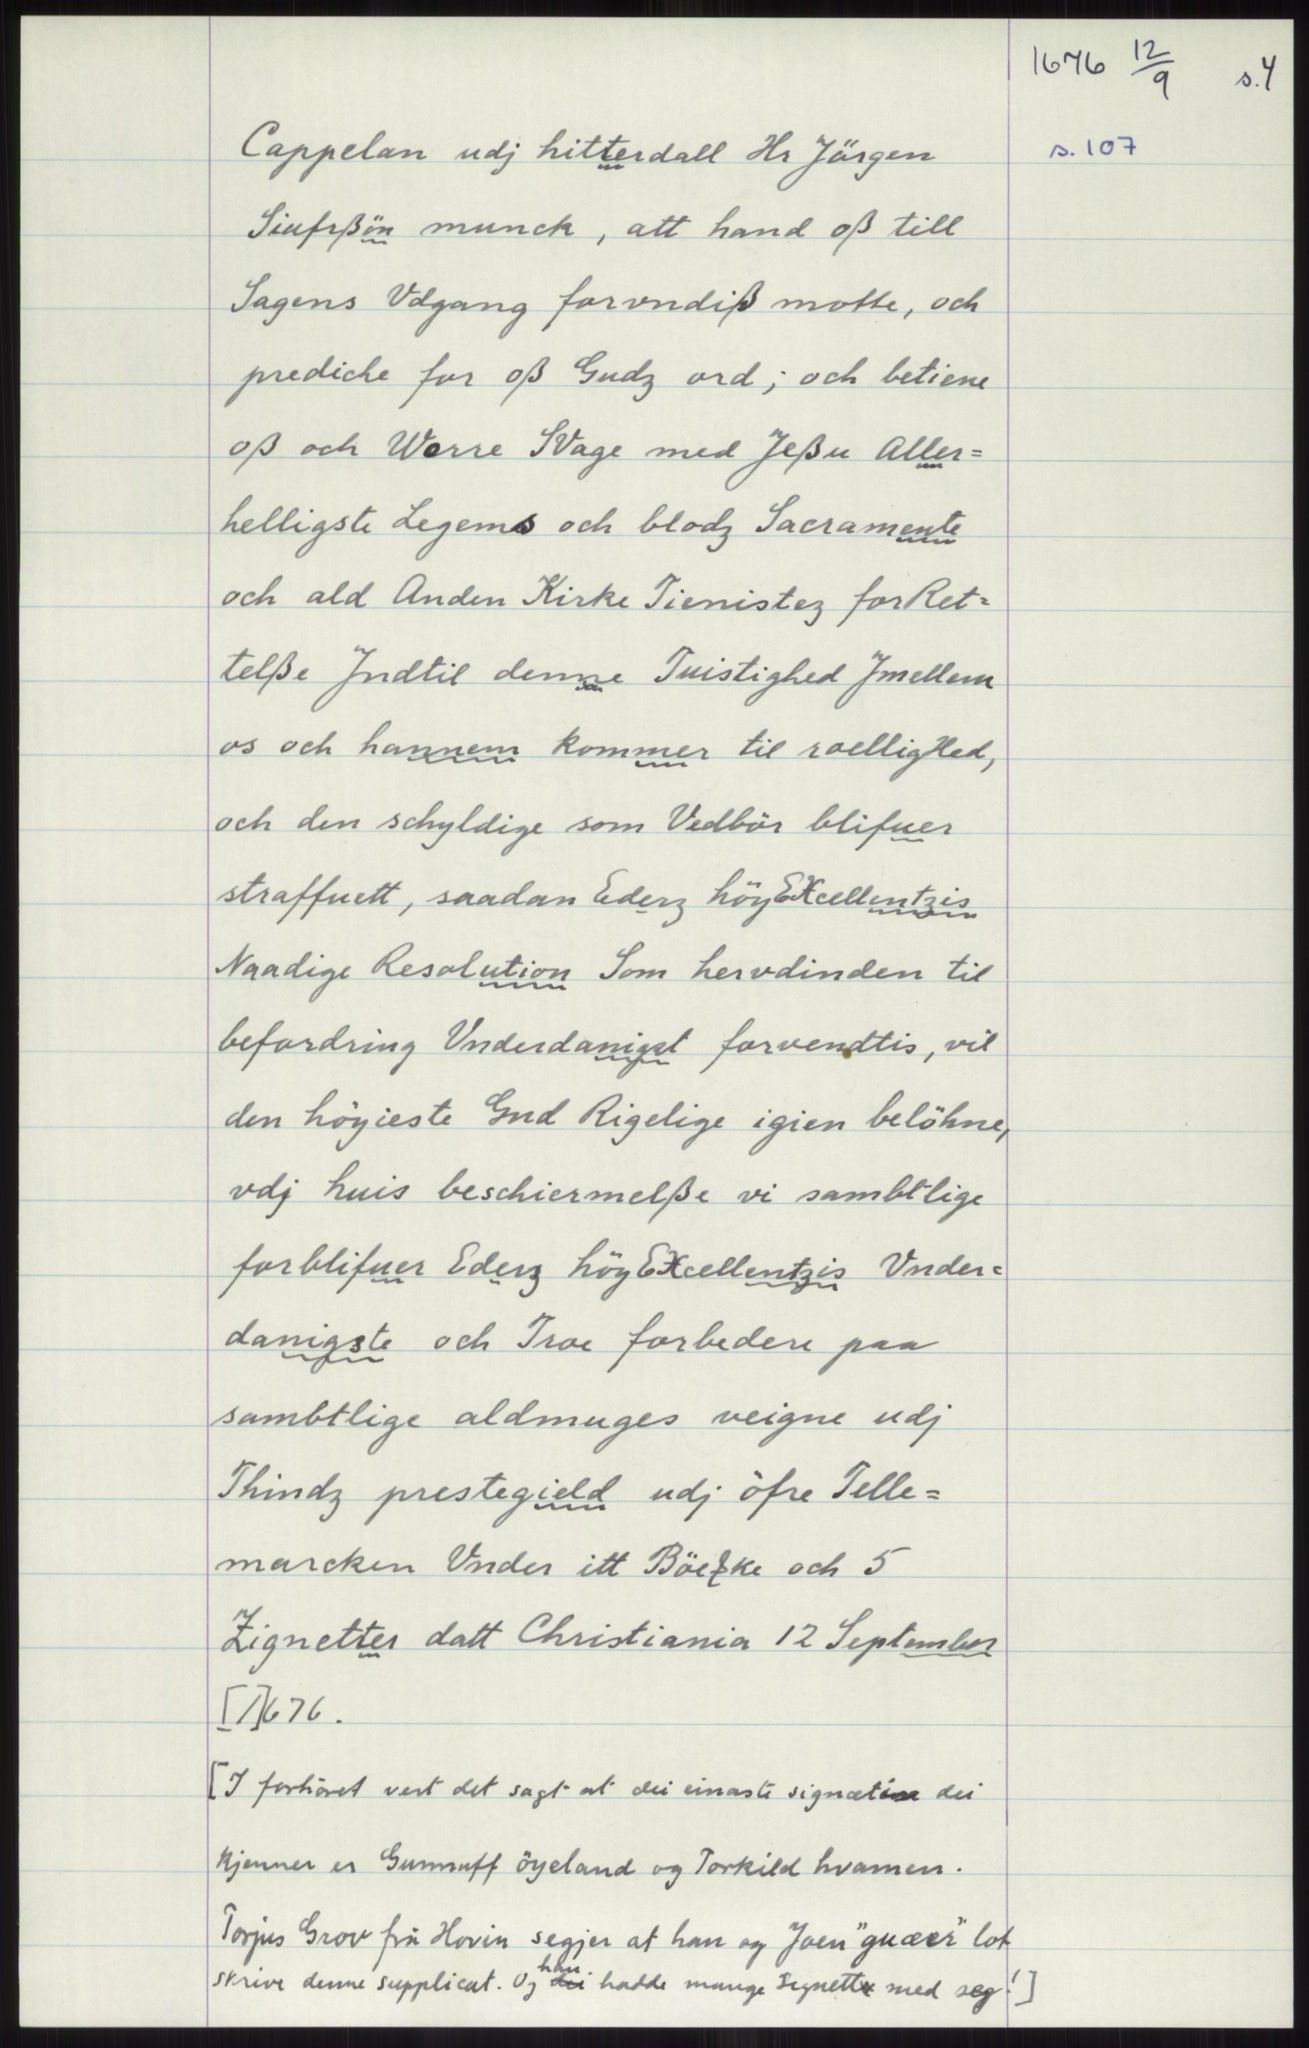 1676 12/9 s.4
s.107
Cappelan udj hitterdall Hr Jörgen
Siufrßön munck, att hand oß till
Sagens Vdgang forvndiß motte, och
prediche for oß Gudz ord; och betiene
oß och Worre SVage med Jeßu Aller=
helligste Legems och blodz Sacramente
och ald Anden Kirke Tienistez forRet=
telße Jndtil denne Tuistighed Jmellem
os och hannem kommer til roellighed,
och den schyldige som Vedbör blifuer
straffuett, saadan Ederz höyEXcellentzis
Naadige Resolution Som hervdinden til
befordring Vnderdanigst forvendtis, vil
den höyieste Gud Rigelige igien belöhne,
vdj huis beschiermelße vi sambtlige
forblifuer Ederz höyEXcellentzis Vnder=
danigste och Troe forbedere paa
sambtlige aldmuges veigne udj
Thindz prestegield udj öfre Telle=
marcken Vnder itt Böe ke och 5
Zignetter datt Christiania 12 September
[1]676.
[I forhöret vert det sagt at dei einaste signet dei
kjenner er Gunnuff öyeland og Torkild hvamen.
Torjus Grov frå Hovin segjer at han og Joen "guæer" lot
skrive denne supplicat. Og han hadde mange Signetter med seg!]